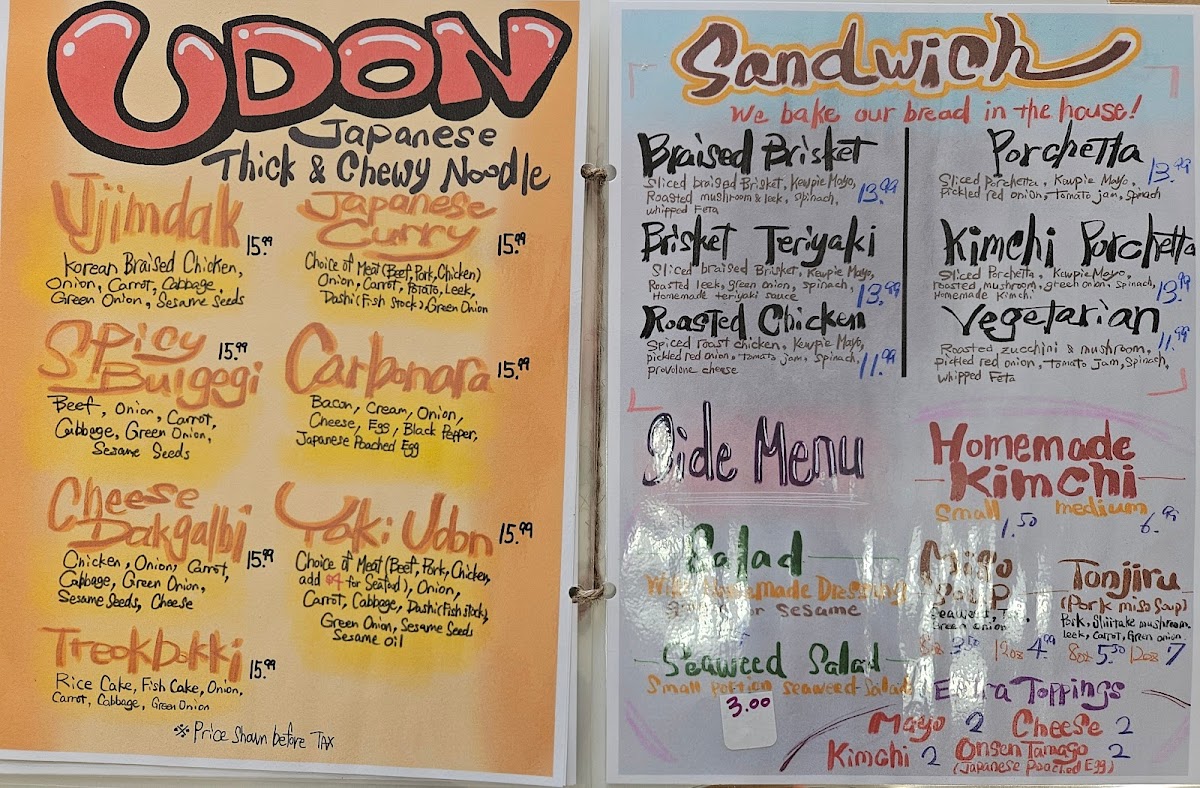 UDON
Japanese
Thick & Chewy Noodle
Jjimdak 15.99
Korean Braised Chicken,
Onion, Carrot, Cabbage,
Green Onion, Sesame Seeds
Spicy
Bulgegi 15.99
Beef, Onion, Carrot,
Cabbage, Green Onion,
Sesame Seeds
Cheese
Dakgalbi 15.99
Chicken, Onion, Carrot,
Cabbage, Green Onion,
Sesame Seeds, Cheese
Tteokbokki 15.99
Rice Cake, Fish Cake, Onion,
Carrot, Cabbage, Green Onion
Japanese
Curry 15.99
Choice of Meat (Beef, Pork, Chicken)
Onion, Carrot, Potato, Leek,
Dashi (Fish Stock), Green Onion
Carbonara 15.99
Bacon, Cream, Onion,
Cheese, Egg, Black Pepper,
Japanese Poached Egg
Yaki Udon 15.99
Choice of Meat (Beef, Pork, Chicken,
add $4 for Seafood), Onion,
Carrot, Cabbage, Dashi (Fish Stock),
Green Onion, Sesame Seeds
Sesame oil
※ Price shown before TAX
Sandwich
We bake our bread in the house!
Braised Brisket
Sliced braised Brisket, Kewpie Mayo,
Roasted mushroom & leek, spinach, 13.99
whipped Feta
Brisket Teriyaki
Sliced braised Brisket, Kewpie Mayo,
Roasted leek, green onion, spinach,
Homemade teriyaki sauce 13.99
Roasted Chicken
Spiced roast chicken, Kewpie Mayo,
pickled red onion, tomato jam, spinach,
provolone cheese 11.99
Porchetta 13.99
Sliced Porchetta, Kewpie Mayo,
pickled red onion, tomato jam, spinach
Kimchi Porchetta
Sliced Porchetta, Kewpie Mayo,
roasted mushroom, green onion, spinach,
Homemade Kimchi 13.99
Vegetarian 11.99
Roasted zucchini & mushroom,
pickled red onion, tomato jam, spinach,
whipped Feta
Side Menu
Salad
Homemade Dressing
or Sesame
Seaweed Salad
Small portion seaweed salad
3.00
Homemade
Kimchi
small 1.50 medium 6.95
Miso
Soup
Green onion
8oz 3.50 12oz 4.99
Tonjiru
(Pork miso soup)
Pork, Shiitake mushroom,
leek, Carrot, Green onion
8oz 5.50 12oz 7
Extra Toppings
Mayo 2 Cheese 2
Kimchi 2 Onsen Tamago 2
(Japanese Poached Egg)